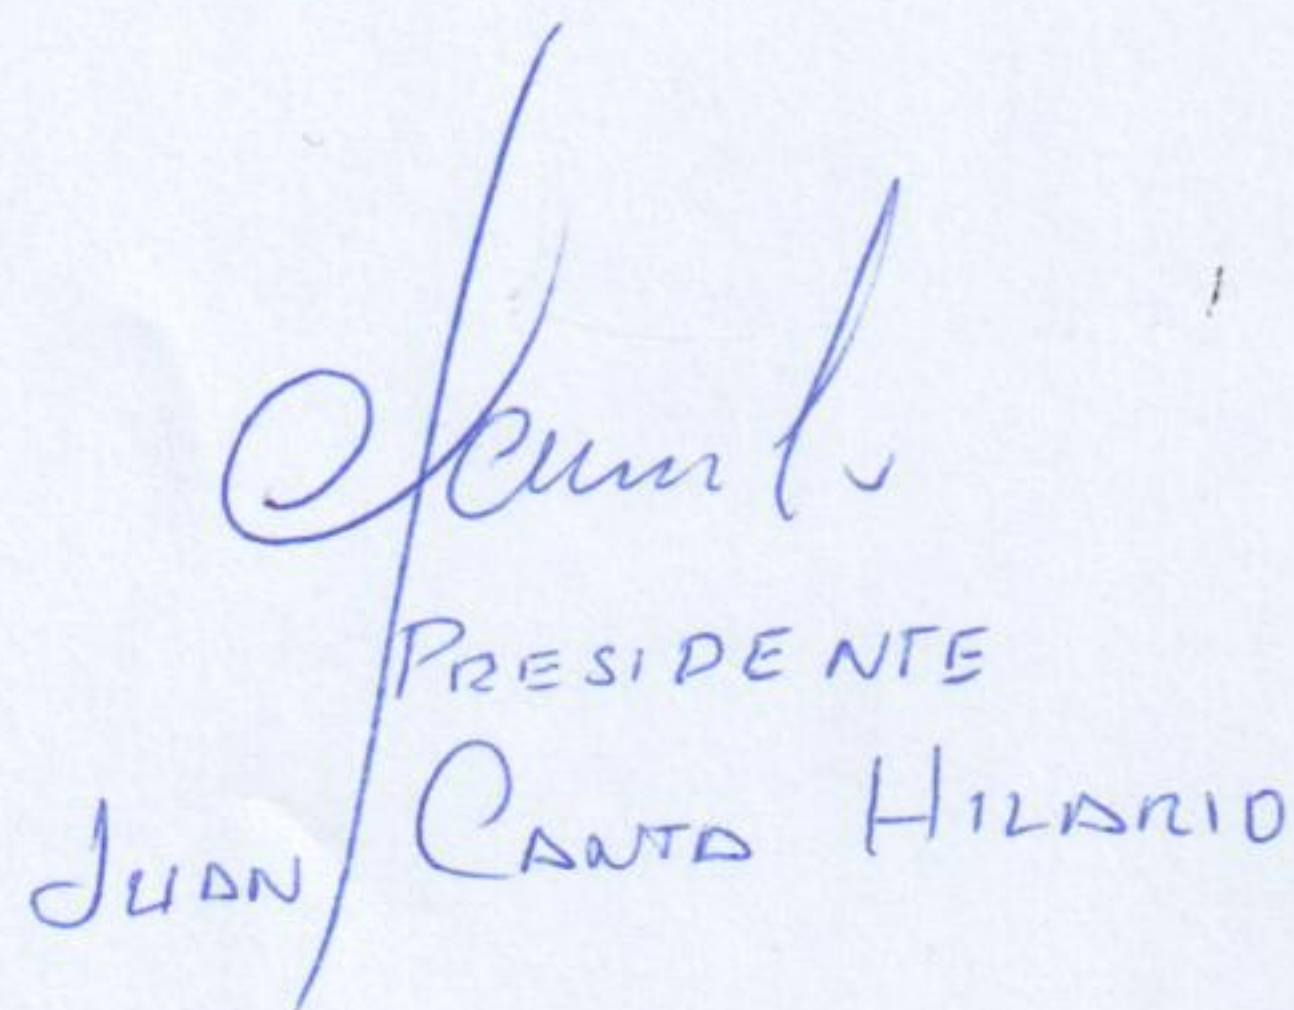 PRESIDENTE
JUAN CANTA HILARIO